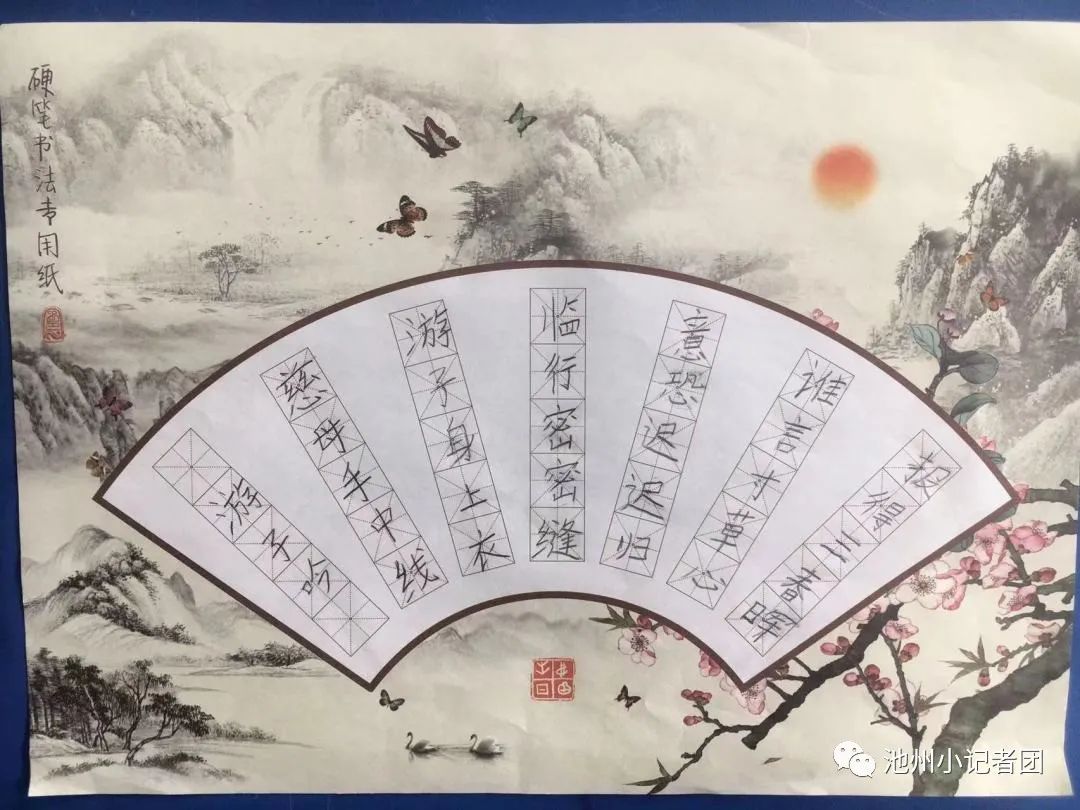 硬笔书法专用纸
游子吟
慈母手中线
游子身上衣
临行密密缝
意恐迟迟归
谁言寸草心
报得三春晖
池州小记者团